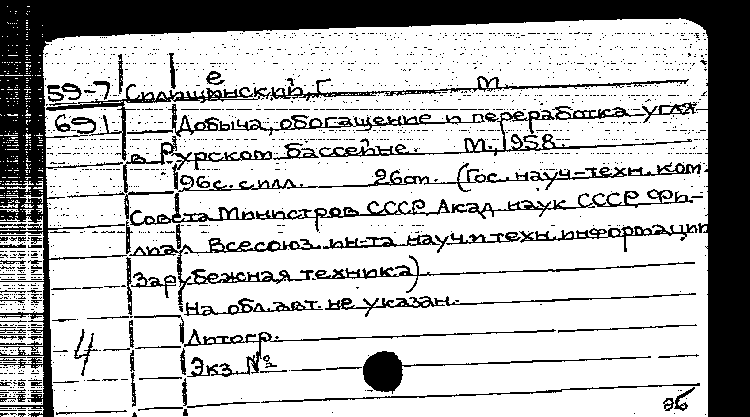 59-7 Сплищенский, Г. М.
691 Добыча, обогащение и переработка угля
в Рурском бассейне. М., 1958.
96 с. с илл. 26 см. (Гос. науч-техн. ком.
Совета Министров СССР. Акад. наук СССР. Фи-
лиал Всесоюз. ин-та науч. и техн. информации
Зарубежная техника).
На обл. авт. не указан.
Литогр.
4 Экз. №